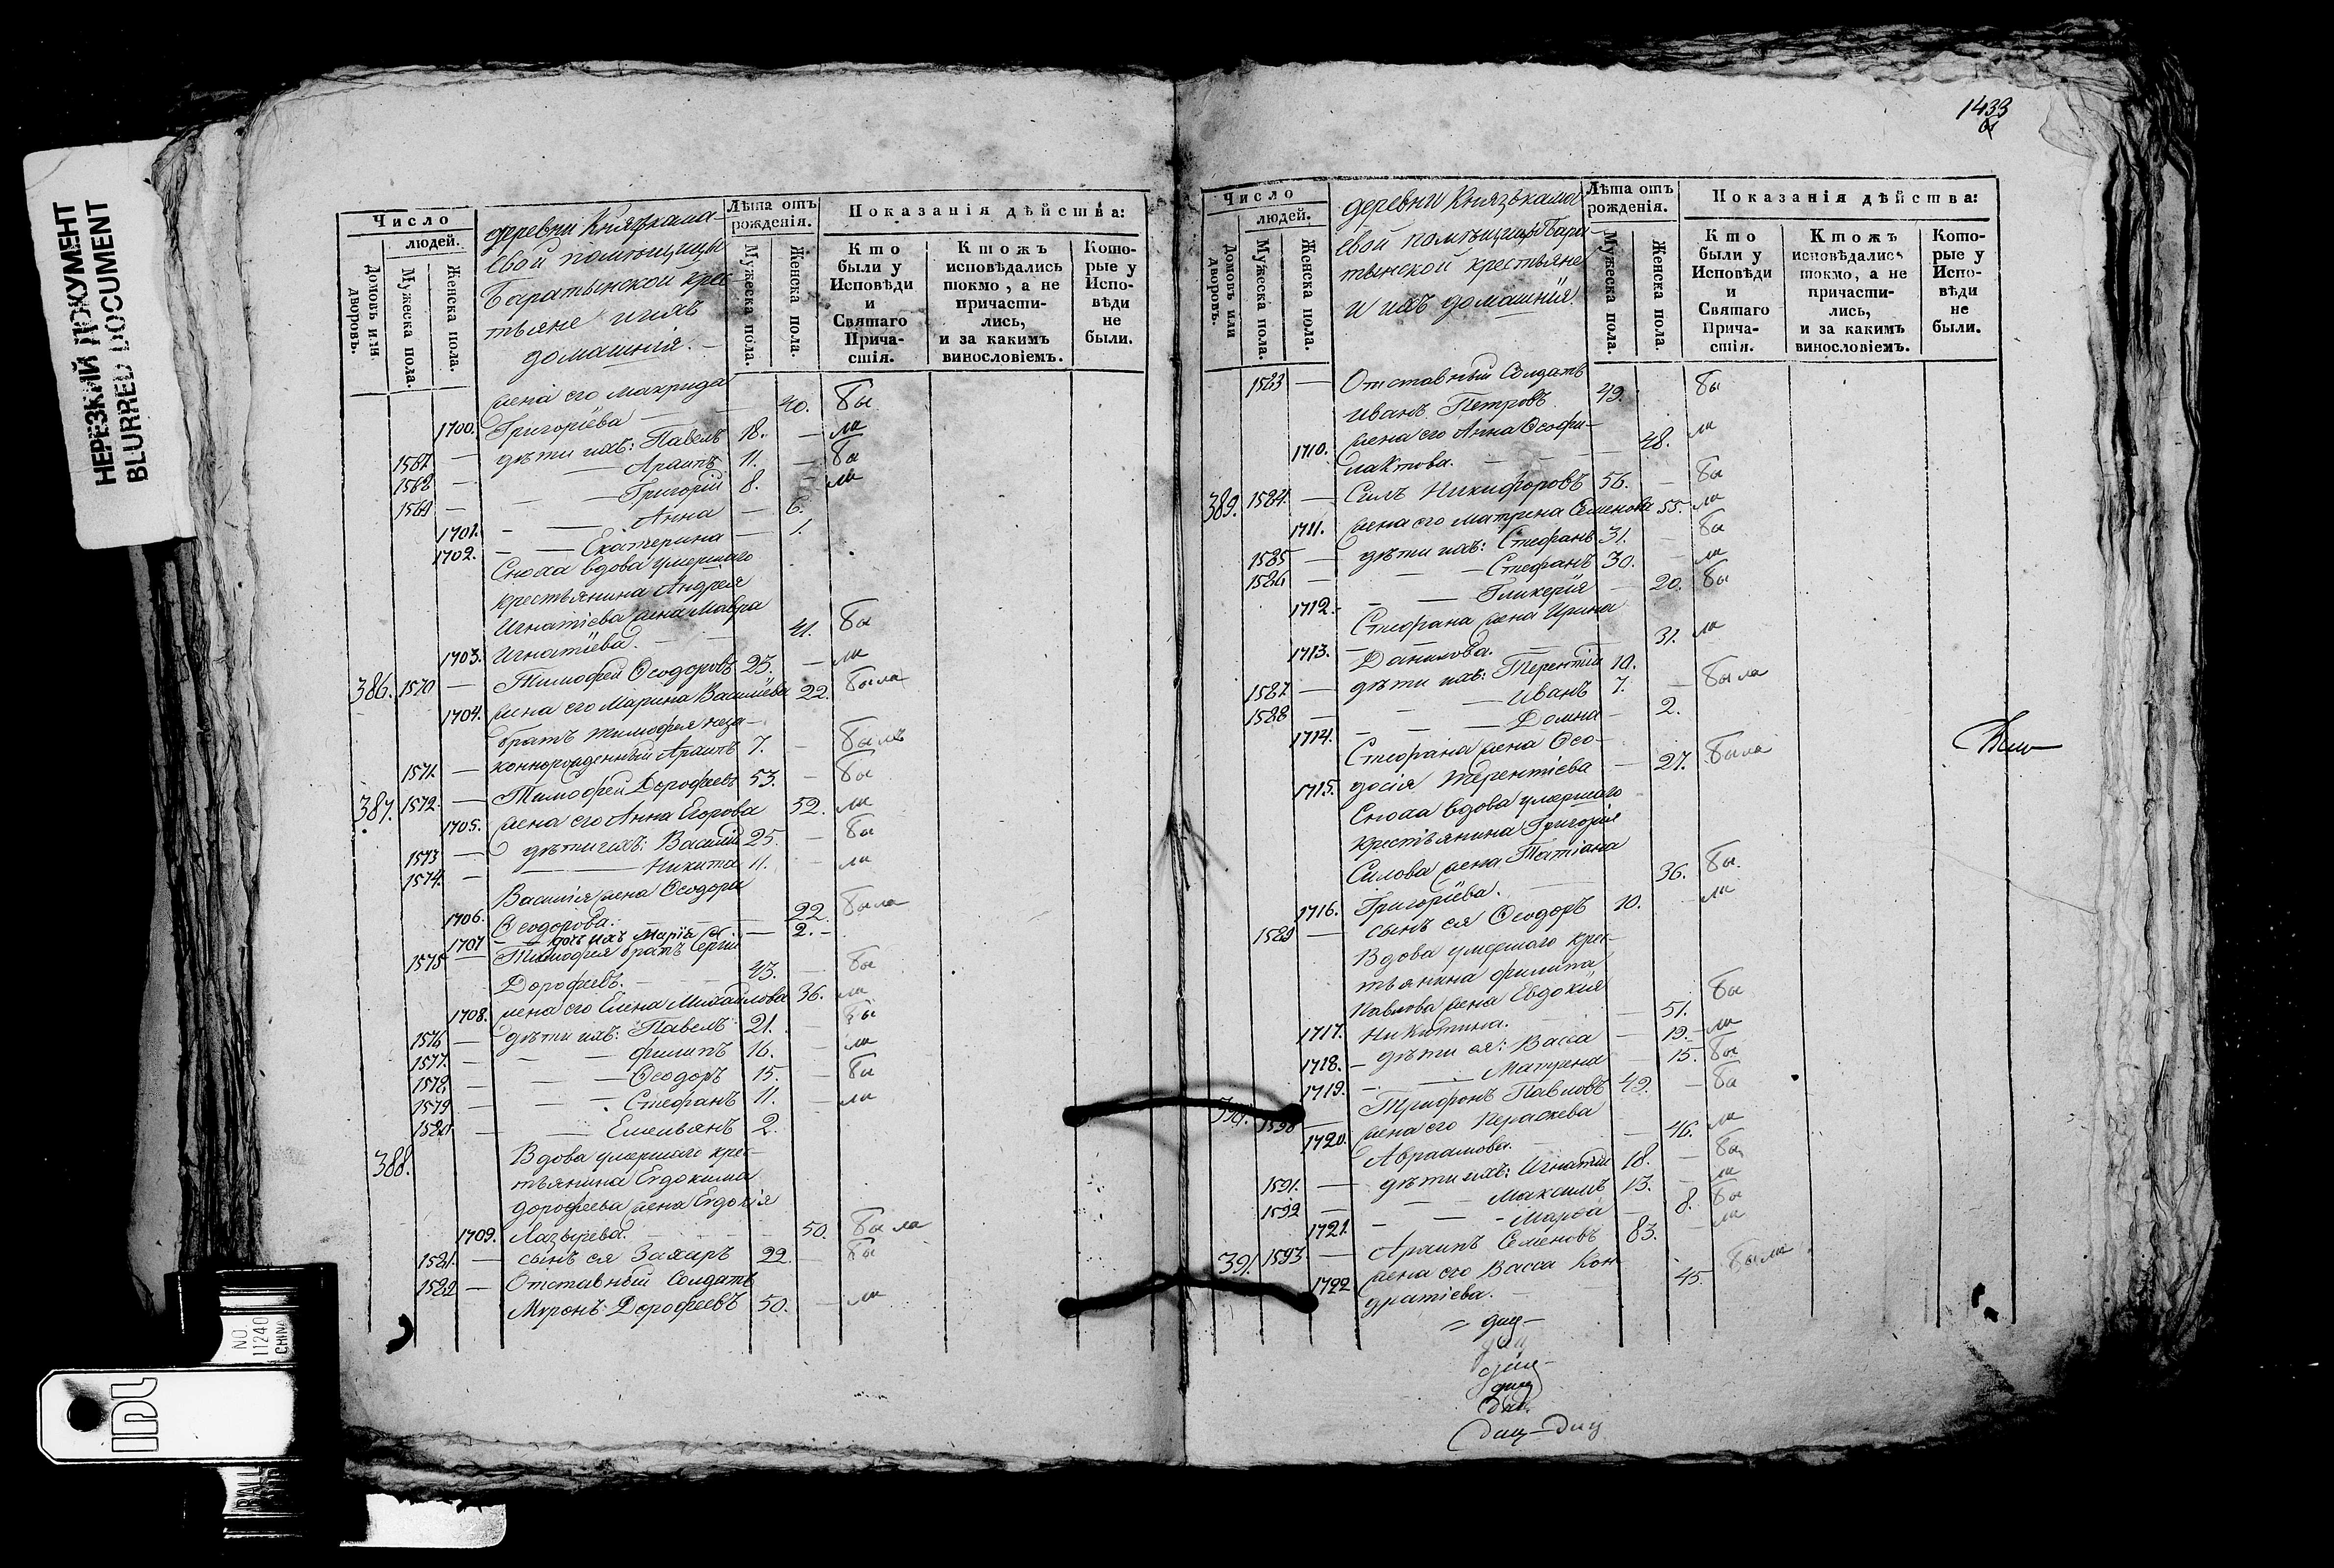 НЕРЕЗКИЙ ДОКУМЕНТ
BLURRED DOCUMENT
Число
людей.
Домовъ или дворовъ.
Мужеска пола.
Женска пола.
деревни Князькама-
евой помѣщицы
Баратынской крес-
тьяне и ихъ
домашнія.
Лѣта отъ рожденія.
Мужеска пола.
Женска пола.
Показанія дѣйства:
Кто были у Исповѣди и Святаго Причастія.
Ктожъ исповѣдались токмо, а не причастились, и за какимъ винословіемъ.
Которые у Исповѣди не были.
жена его Макрида
1700. Григоріева 40. Бы
1567 — дѣти ихъ: Павелъ 18. — ли
1568 — Архипъ 11. — Бы
1569 — Григорій 8. — ли
1701. — Анна — 6.
1702. — Екатерина — 1.
Сноха вдова умершаго
крестьянина Андрея
Игнатіева жена Мавра
1703. Игнатіева. 41. Бы
386. 1570 — Тимофей Ѳеодоровъ 23. — ли
1704. жена его Марина Василіева 22. была
братъ Тимофея неза-
1571. — коннорожденный Архипъ 7. — былъ
387. 1572. — Тимофей Дорофеевъ 53. — Бы
1705. жена его Анна Егорова 52. ли
1573 — дѣти ихъ: Василій 25. — Бы
1574. — Никита 11. — ли
Василія жена Ѳеодора
1706. Ѳеодорова. — 22. была
1707 — дочь ихъ Марія — 2. —
1575 — Тимофея братъ Сергій
Дорофеевъ. 43. — Бы
1708. жена его Елена Михайлова 36. ли
1576 — дѣти ихъ: Павелъ 21. — Бы
1577. — Филипъ 16. — ли
1578 — Ѳеодоръ 15. — Бы
1579 — Стефанъ 11. — ли
1580. — Емельянъ 2.
388. Вдова умершаго крес-
тьянина Евдокима
дорофеева жена Евдокія
1709. Лазырева. 50. была
1581. — сынъ ея Захаръ 22. — Бы
1582 — Отставный Солдатъ
Миронъ Дорофеевъ 50. — ли
1433
Число
людей.
Домовъ или дворовъ.
Мужеска пола.
Женска пола.
деревни Князькама
евой помѣщицы Бара-
тынской крестьяне
и ихъ домашнія.
Лѣта отъ рожденія.
Мужеска пола.
Женска пола.
Показанія дѣйства:
Кто были у Исповѣди и Святаго Причастія.
Ктожъ исповѣдались токмо, а не причастились, и за какимъ винословіемъ.
Которые у Исповѣди не были.
1583 — Отставный Солдатъ
Иванъ Петровъ 49. Бы
1710. жена его Анна Ѳеофи-
лактова. — 48. ли
389. 1584. — Силъ Никифоровъ 56. — Бы
1711. жена его Матрена Семенова 55. ли
1585 — дѣти ихъ: Стефанъ 31. — Бы
1586 — Стефанъ 30. — ли
1712. — Гликерія — 20. Бы
Стефана жена Ирина
1713. — Данилова. — 31. ли
1587 — дѣти ихъ: Терентій 10.
1588 — Иванъ 7. — была
1714. — Домна — 2.
Стефана жена Ѳео-
1715. досія Терентіева — 27. была
Сноха вдова умершаго
крестьянина Григорія
Силова жена Татіана
1716. Григоріева. 36. Бы
1589 — сынъ ея Ѳеодоръ 10. ли
Вдова умершаго крес-
тьянина филипа
Павлова жена Евдокія
1717. Никитина. — 51. Бы
1718. — дѣти ея: Васса — 19. — ли
1719. — Матрена — 15. Бы
390. 1590 — Трифонъ Павловъ 49. — Бы
1720. жена его Параскева
Авраамова. — 46. ли
1591. — дѣти ихъ: Игнатій 18. — Бы
1592 — Максимъ 13. — ли
1721. — Марѳа — 8. Бы
391. 1593. — Архипъ Семеновъ 83. — ли
1722 жена его Васса Кон-
дратіева. 45. была
NO.
11240
CHINA
IDL
BALL